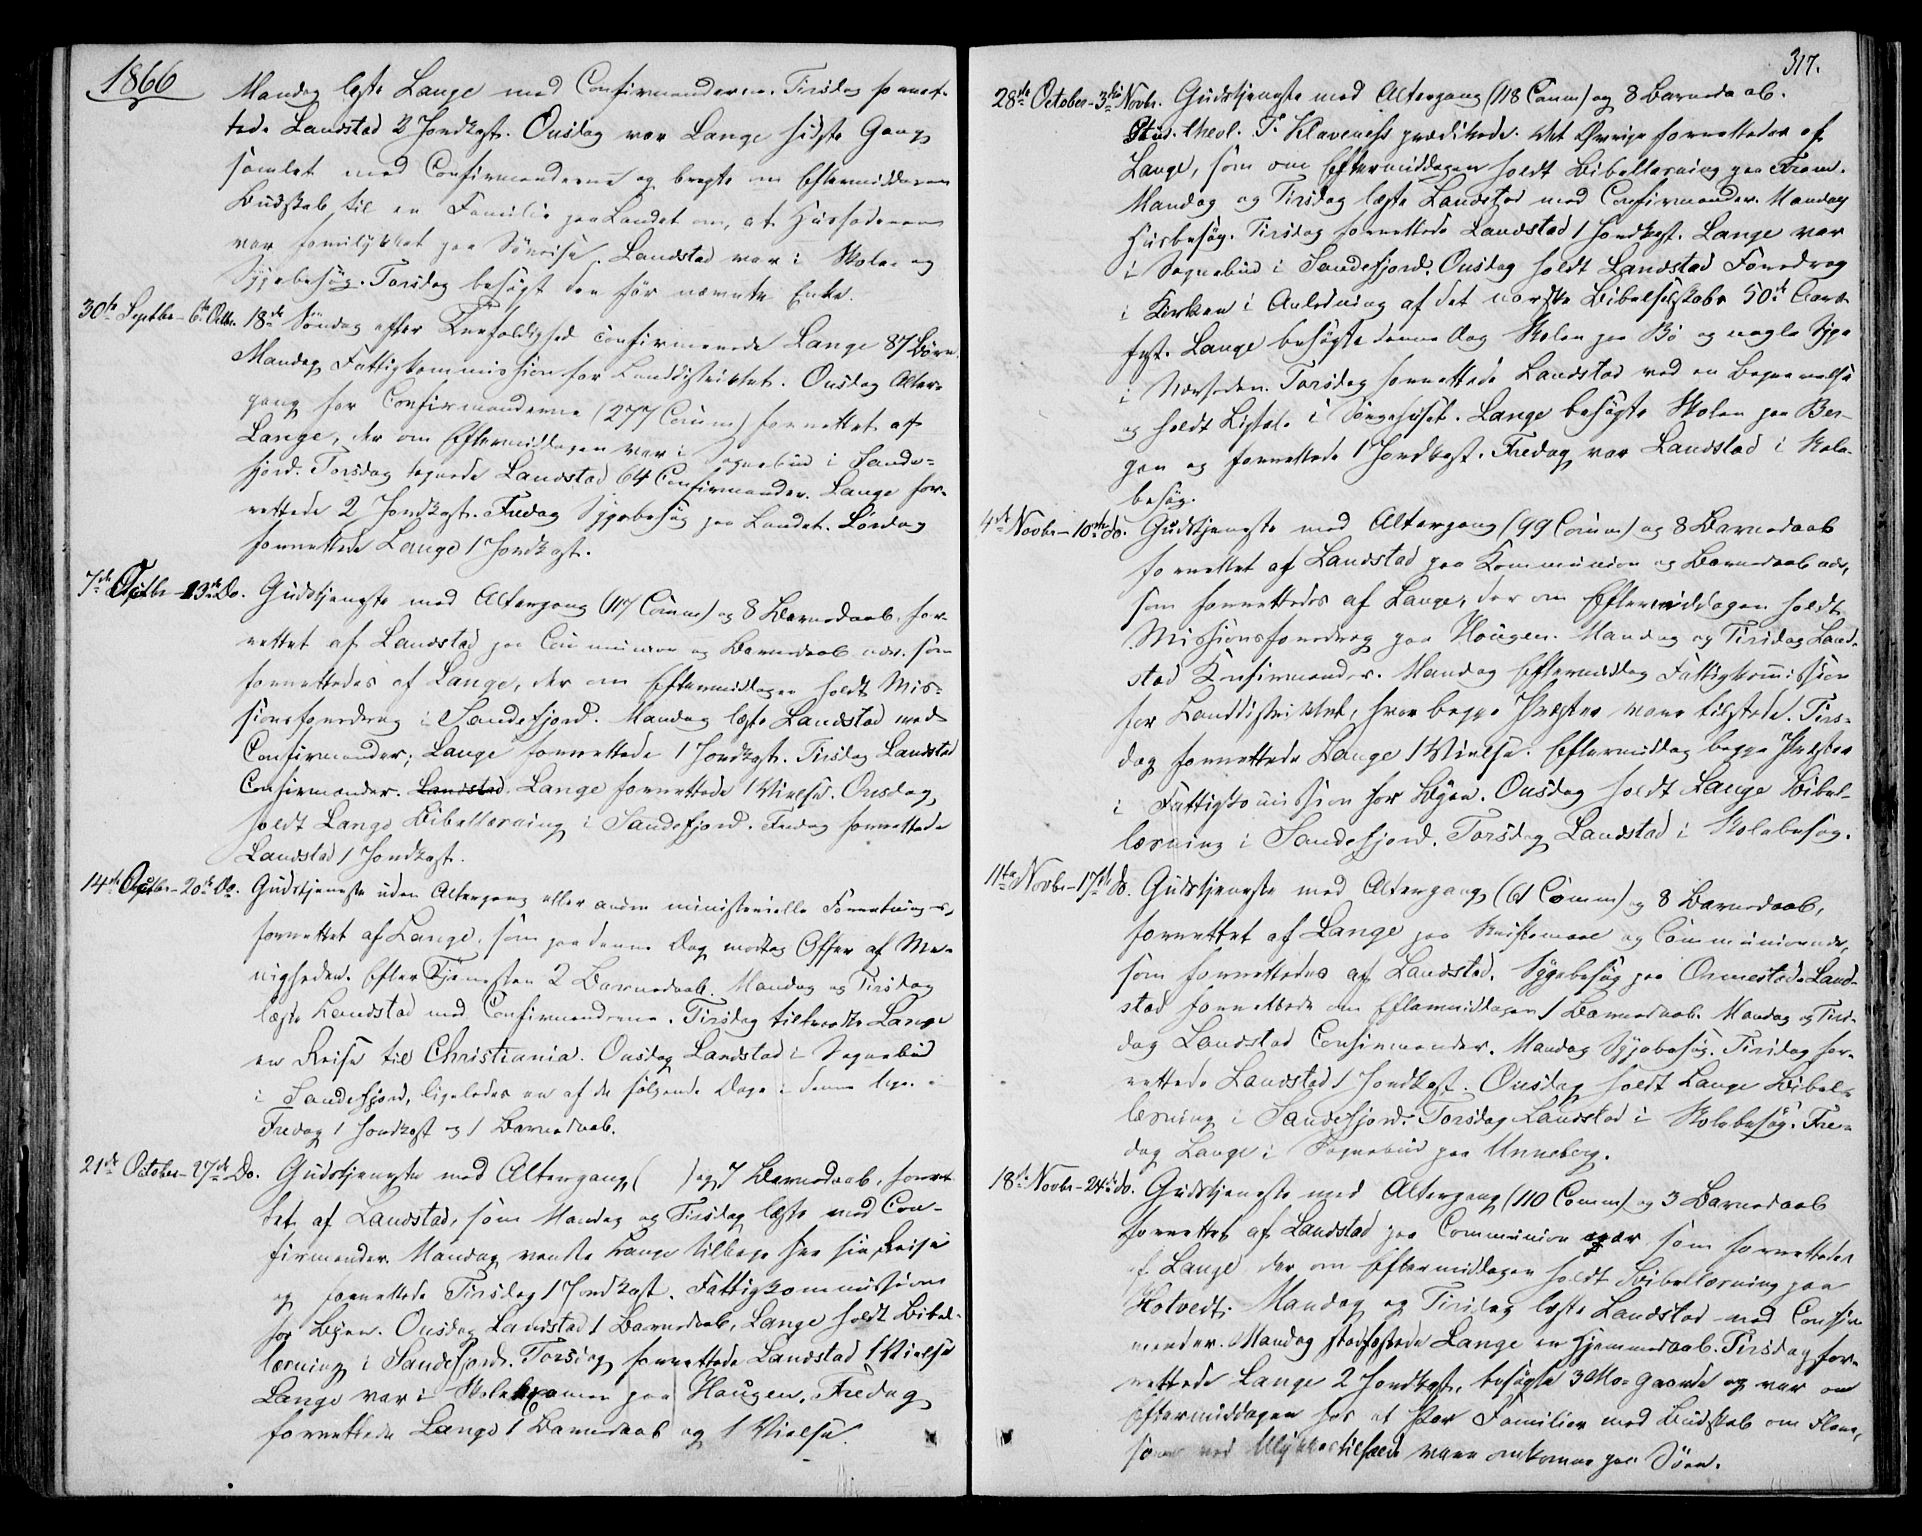 1866
Mandag læste Lange med Confirmanderne. Tirsdag forret-
tede Landstad 2 Jordkast. Onsdag var Lange sidste Gang
samlet med Confirmanderne og bragte om Eftermiddagen
Budskab til en Familie paa Landet om, at Husfaderen
var forulykket paa Søreise. Landstad var i Skole og
Sygebesøg. Torsdag besøgt den før nævnte Enke.
30te Septbr – 6te Octbr. 18de Søndag efter Trefoldighed confirmerede Lange 87 Børn.
Mandag Fattigkommission for Landdistriktet. Onsdag Alter-
gang for Confirmanderne (277 Comm) forrettet af
Lange, der om Eftermiddagen var i Sognebud i Sande-
fjord. Torsdag tegnede Landstad 64 Confirmander. Lange for-
rettede 2 Jordkast. Fredag Sygebesøg paa Landet. Lørdag
forrettede Lange 1 Jordkast.
7de Octbr – 13de Do. Gudstjeneste med Altergang (117 Comm) og 8 Barnedaab, for-
rettet af Landstad paa Communion og Barnedaab nær, som
forrettedes af Lange, der om Eftermiddagen holdt Mis-
sionsforedrag i Sandefjord. Mandag læste Landstad med
Confirmander; Lange forrettede 1 Jordkast. Tirsdag Landstad
Confirmander. Landstad. Lange forrettede 1 Vielse. Onsdag
holdt Lange Bibellæsning i Sandefjord. Fredag forrettede
Landstad 1 Jordkast.
14de Octbr – 20de Do. Gudstjeneste uden Altergang eller andre ministerielle Forretninger,
forrettet af Lange, som paa denne Dag modtog Offer af Me-
nigheden. Efter Tjenesten 2 Barnedaab. Mandag og Tirsdag
læste Landstad med Confirmanderne. Tirsdag tiltraadte Lange
en Reise til Christiania. Onsdag Landstad i Sognebud
i Sandefjord, ligeledes en af de følgende Dage i denne Uge.
Fredag 1 Jordkast og 1 Barnedaab.
21de October – 27de Do. Gudstjeneste med Altergang ( ) og 7 Barnedaab, forret-
tet af Landstad, som Mandag og Tirsdag læste med Con-
firmander. Mandag vendte Lange tilbage fra sin Reise
og forrettede Tirsdag 1 Jordkast. Fattigkommission
for Byen. Onsdag Landstad 1 Barnedaab, Lange holdt Bibel-
læsning i Sandefjord. Torsdag forrettede Landstad 1 Vielse
Lange var i Skoleexamen paa Haugen. Fredag
forrettede Lange 1 Barnedaab og 1 Vielse.
317.
28de October – 3die Novbr. Gudstjeneste med Altergang (118 Comm) og 8 Barnedaab.
Stud. theol. T. Klaveness prædikede. Det Øvrige forrettedes af
Lange, som om Eftermiddagen holdt Bibellæsning paa Fram.
Mandag og Tirsdag læste Landstad med Confirmander. Mandag
Husbesøg. Tirsdag forrettede Landstad 1 Jordkast. Lange var
i Sognebud i Sandefjord. Onsdag holdt Landstad Foredrag
i Kirken i Anledning af det norske Bibelselskabs 50de Aars-
fest. Lange besøgte denne Dag Skolen paa Bø og nogle Syge
i Nærheden. Torsdag forrettede Landstad ved en Begravelse
og holdt Ligtale i Sørgehuset. Lange besøgte Skolen paa Ber-
gan og forrettede 1 Jordkast. Fredag var Landstad i Skole-
besøg.
4de Novbr – 10de Do. Gudstjeneste med Altergang (99 Comm) og 8 Barnedaab
forrettet af Landstad paa Kommunion og Barnedaab nær,
som forrettedes af Lange, der om Eftermiddagen holdt
Missionsforedrag paa Haugen. Mandag og Tirsdag Land-
stad Konfirmander. Mandag Eftermiddag Fattigkommission
for Landdistriktet, hvor begge Præster vare tilstede. Tirs-
dag forrettede Lange 1 Vielse. Eftermiddag begge Præster
i Fattigkommission for Byen. Onsdag holdt Lange Bibel-
læsning i Sandefjord. Torsdag Landstad i Skolebesøg.
11te Novbr – 17de Do. Gudstjeneste med Altergang (61 Comm) og 8 Barnedaab,
forrettet af Lange paa Skriftemaal og Communion nær,
som forrettedes af Landstad. Sygebesøg paa Ormestad. Land-
stad forrettede om Eftermiddagen 1 Barnedaab. Mandag og Tirs-
dag Landstad Confirmander. Mandag Sygebesøg. Tirsdag for-
rettede Landstad 1 Jordkast. Onsdag holdt Lange Bibel-
læsning i Sandefjord. Torsdag Landstad i Skolebesøg. Fre-
dag Lange i Sognebud paa Unneberg.
18de Novbr – 24de Do. Gudstjeneste med Altergang (110 Comm) og 3 Barnedaab
forrettet af Landstad paa Communion nær som forrettedes
af Lange der om Eftermiddagen holdt Bibellæsning paa
Hotvedt. Mandag og Tirsdag læste Landstad med Confir-
mander. Mandag stadfæstede Lange en Hjemmedaab. Tirsdag for-
rettede Lange 2 Jordkast, besøgte 3 Mo-Gaarde og var om
Eftermiddagen hos et Par Familier med Budskab om Flere,
som ved Ulykkestilfælde vare omkomne paa Søen.